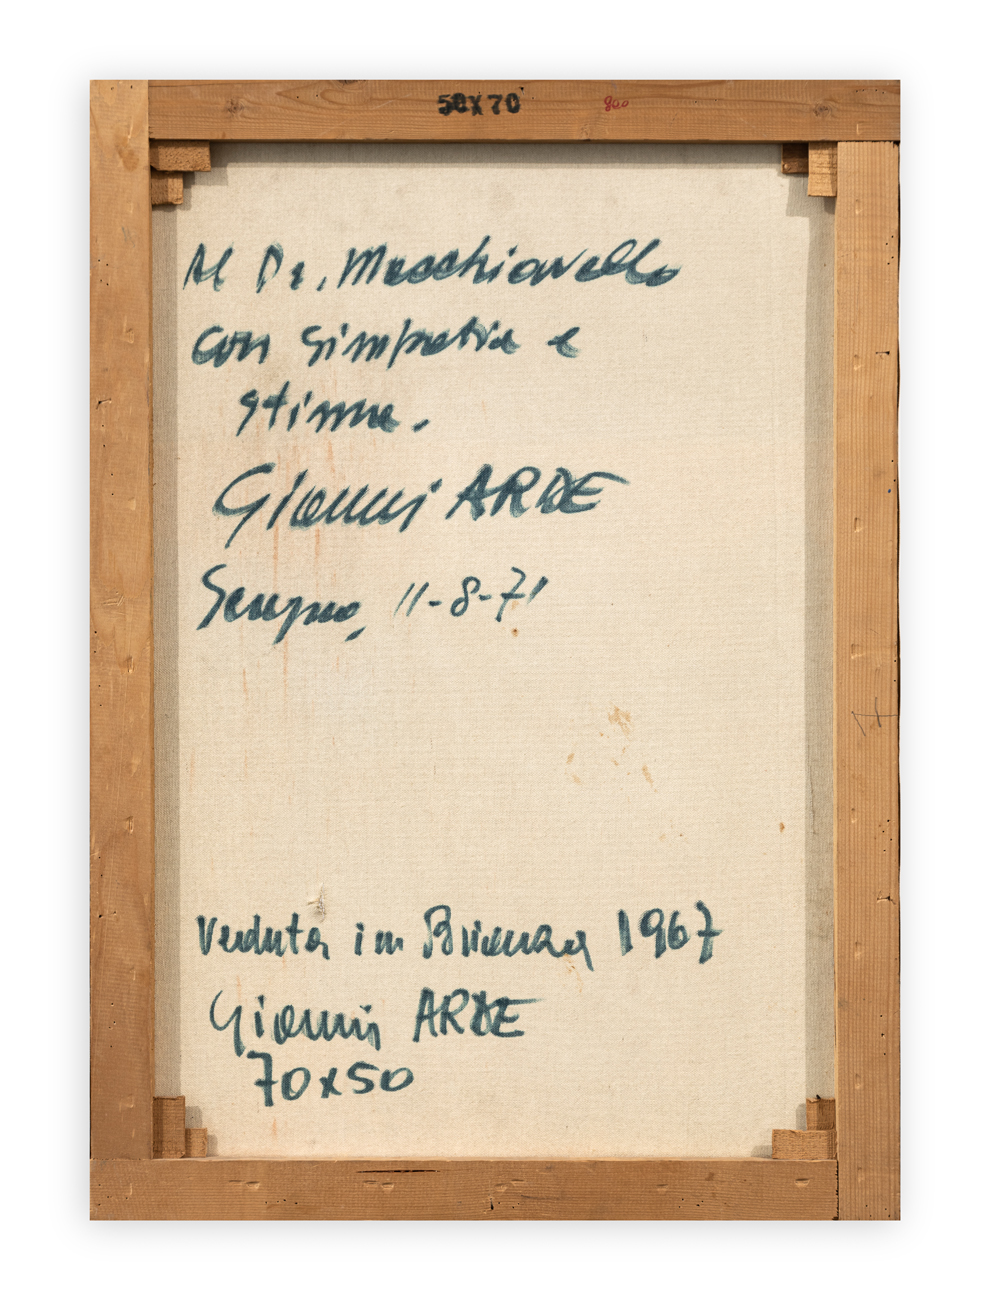 50X70
800
Al Dr. Macchiavello
con simpatia e
stima.
Gianni ARDE
Seregno, 11-8-71
Veduta in Brianza 1967
Gianni ARDE
70x50